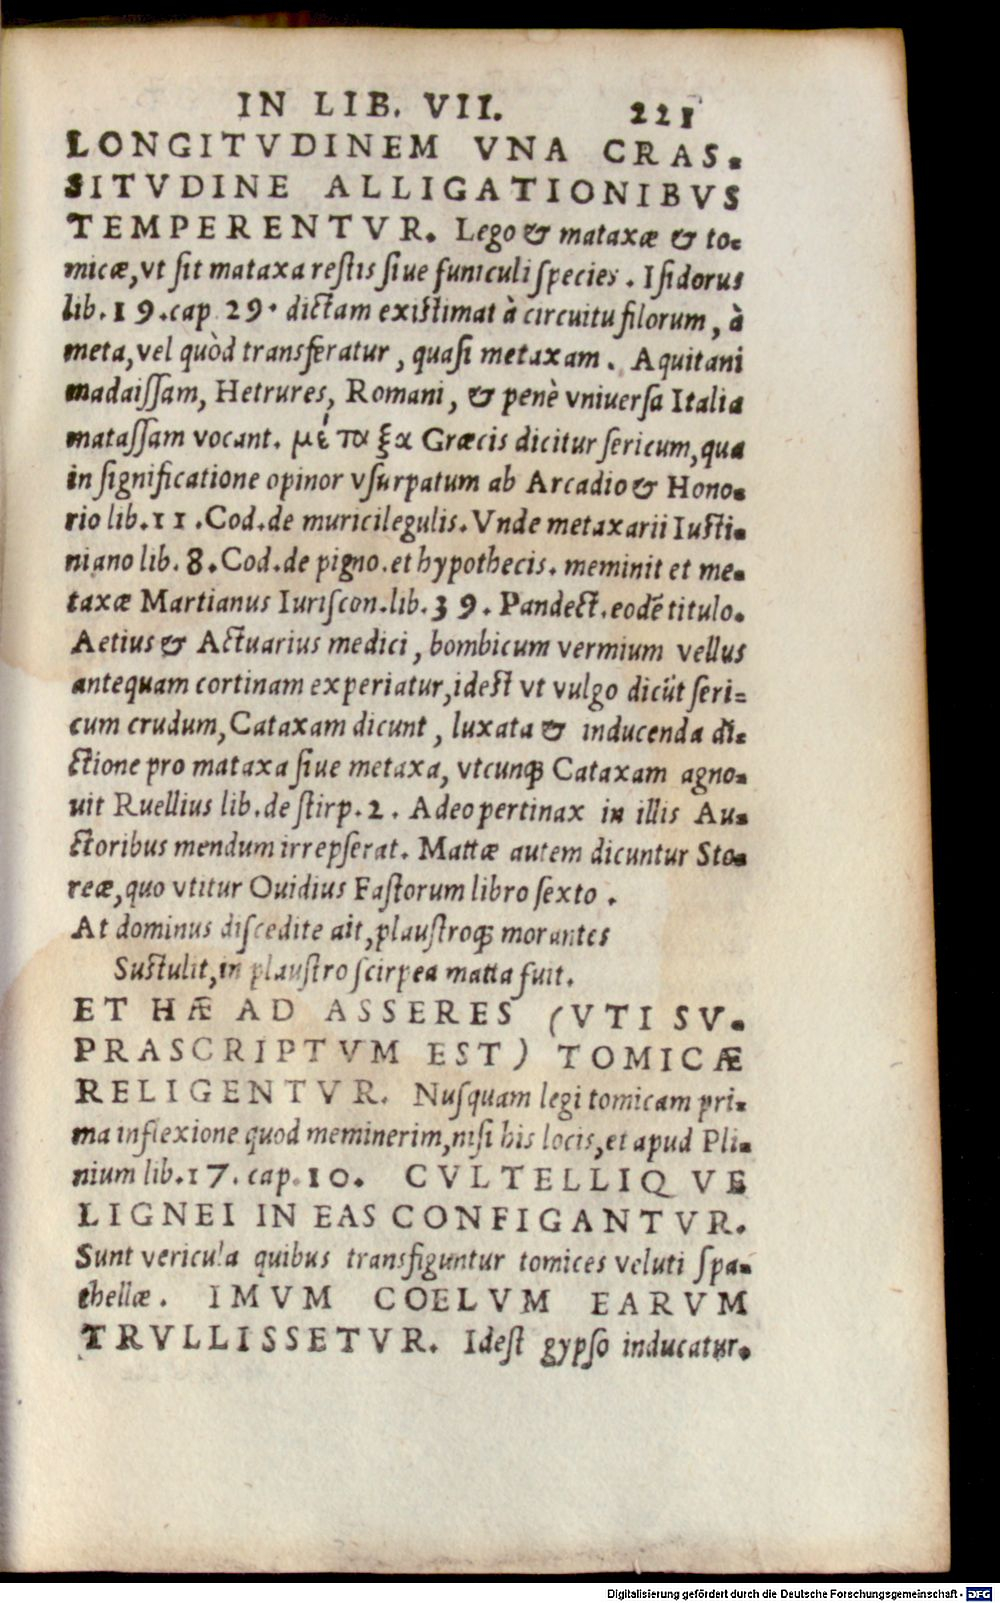 IN LIB. VII. 221
LONGITVDINEM VNA CRAS-
SITVDINE ALLIGATIONIBVS
TEMPERENTVR. Lego & mataxæ & to-
micæ, vt ſit mataxa reſtis ſiue funiculi ſpecies. Iſidorus
lib. 19. cap 29. dictam exiſtimat à circuitu filorum, à
meta, vel quòd transferatur, quaſi metaxam. Aquitani
madaiſſam, Hetrures, Romani, & penè vniuerſa Italia
mataſſam vocant. μέταξα Græcis dicitur ſericum, qua
in ſignificatione opinor vſurpatum ab Arcadio & Hono-
rio lib. 11. Cod. de muricilegulis. Vnde metaxarii Iuſti-
niano lib. 8. Cod. de pigno. et hypothecis. meminit et me-
taxæ Martianus Iuriſcon. lib. 39. Pandect. eodē titulo.
Aetius & Actuarius medici, bombicum vermium vellus
antequam cortinam experiatur, idest vt vulgo dicūt ſeri-
cum crudum, Cataxam dicunt, luxata & inducenda di-
ctione pro mataxa ſiue metaxa, vtcunq; Cataxam agno-
uit Ruellius lib. de ſtirp. 2. Adeo pertinax in illis Au-
ctoribus mendum irrepſerat. Mattæ autem dicuntur Sto-
reæ, quo vtitur Ouidius Faſtorum libro ſexto.
At dominus diſcedite ait, plauſtroq; morantes
Suſtulit, in plauſtro ſcirpea matta fuit.
ET HÆ AD ASSERES (VTI SV-
PRASCRIPTVM EST) TOMICÆ
RELIGENTVR. Nuſquam legi tomicam pri-
ma inflexione quod meminerim, niſi his locis, et apud Pli-
nium lib. 17. cap. 10. CVLTELLIQVE
LIGNEI IN EAS CONFIGANTVR.
Sunt vericula quibus transfiguntur tomices veluti ſpa-
thellæ. IMVM COELVM EARVM
TRVLLISSETVR. Ideſt gypſo inducatur.
Digitalisierung gefördert durch die Deutsche Forschungsgemeinschaft - DFG